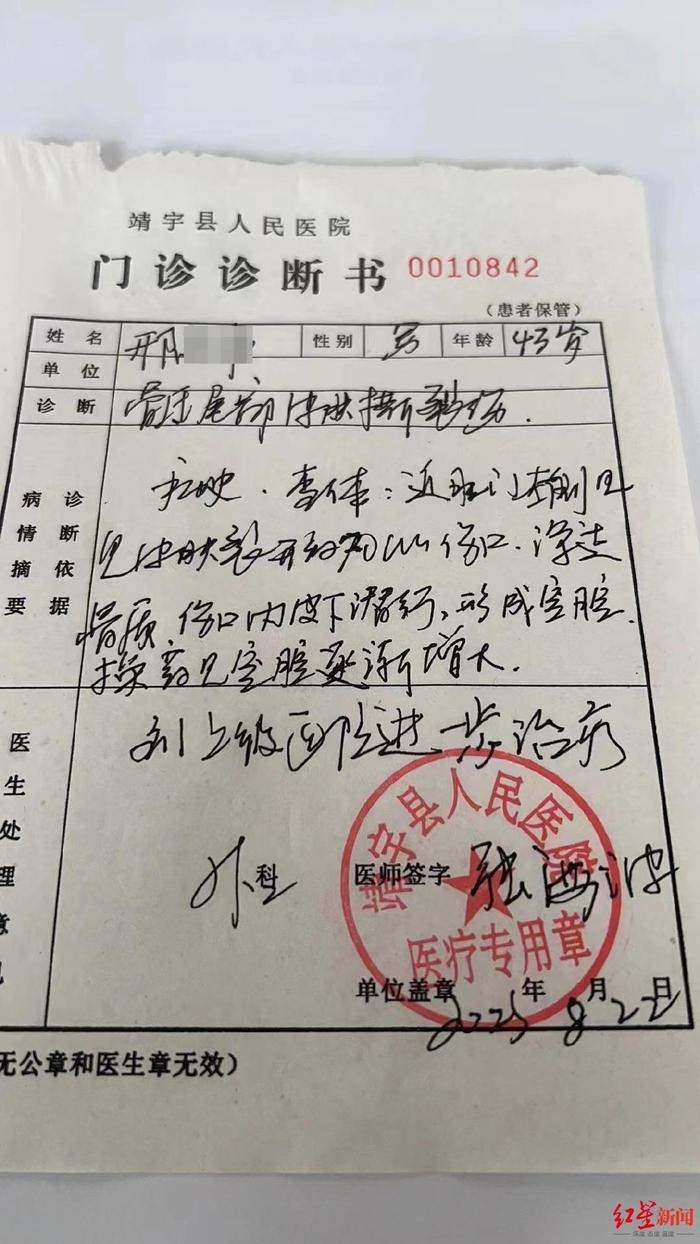 靖宇县人民医院
门诊诊断书 0010842
（患者保管）
姓名 邢 性别 男 年龄 43岁
单位
诊断 骶尾部皮肤挫裂伤.
诊断依据
病情摘要
查体：近肛门
见皮肤裂开 伤口.深达
骨质 伤口内皮下潜行,形成空腔.
换药见空腔逐渐增大.
医生处理意见
到上级医院进一步治疗
外科 医师签字 张海波
靖宇县人民医院
医疗专用章
单位盖章
2025年8月22日
无公章和医生章无效）
红星新闻
深度 态度 温度